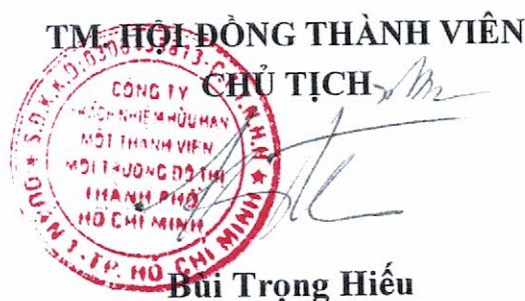 TM. HỘI ĐỒNG THÀNH VIÊN
CHỦ TỊCH
CÔNG TY
TRÁCH NHIỆM HỮU HẠN
MỘT THÀNH VIÊN
MÔI TRƯỜNG ĐÔ THỊ
THÀNH PHỐ
HỒ CHÍ MINH
QUẬN 1 - TP. HỒ CHÍ MINH
Bùi Trọng Hiếu